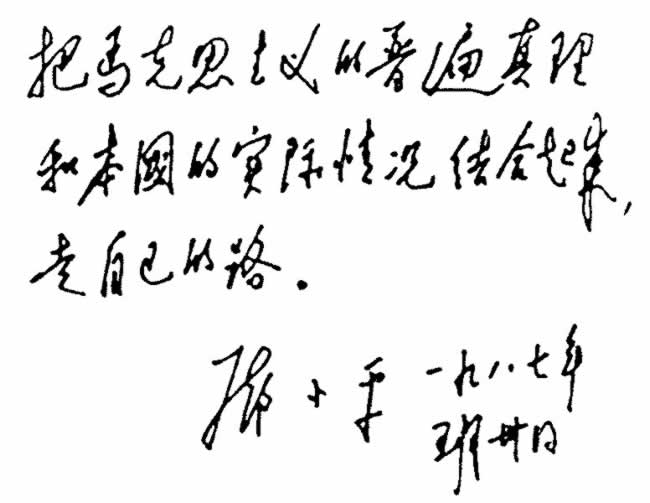 把马克思主义的普遍真理
和本國的实际情况结合起来，
走自己的路。
邓小平 一九八七年
五月卅日